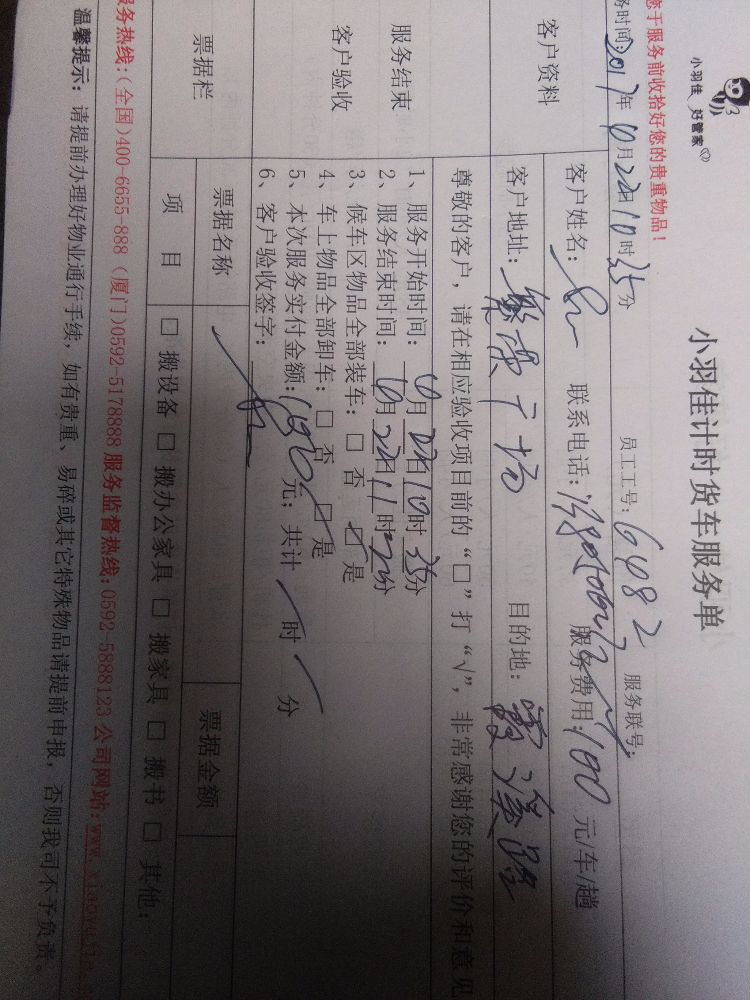 小羽佳 好管家
小羽佳计时货车服务单
您于服务前收拾好您的贵重物品！
务时间:2017年10月22日10时35分 员工工号:6482 服务联号:
客户资料
客户姓名: 联系电话: 服务费用:100元/车/趟
客户地址:繁荣广场 目的地:霞溪路
尊敬的客户，请在相应验收项目前的“□”打“√”，非常感谢您的评价和意见
服务结束
客户验收
1、服务开始时间:10月22日10时35分
2、服务结束时间:10月22日11时分
3、候车区物品全部装车:□ 否 □ 是
4、车上物品全部卸车:□ 否 □ 是
5、本次服务实付金额:元；共计 时 分
6、客户验收签字:
票据栏
票据名称 票据金额
项 目 □ 搬设备 □ 搬办公家具 □ 搬家具 □ 搬书 □ 其他:
服务热线:(全国)400-6655-888 (厦门)0592-5178888 服务监督热线:0592-5888123 公司网站:www.xiaoyujia.
温馨提示: 请提前办理好物业通行手续，如有贵重、易碎或其它特殊物品请提前申报，否则我司不予负责。